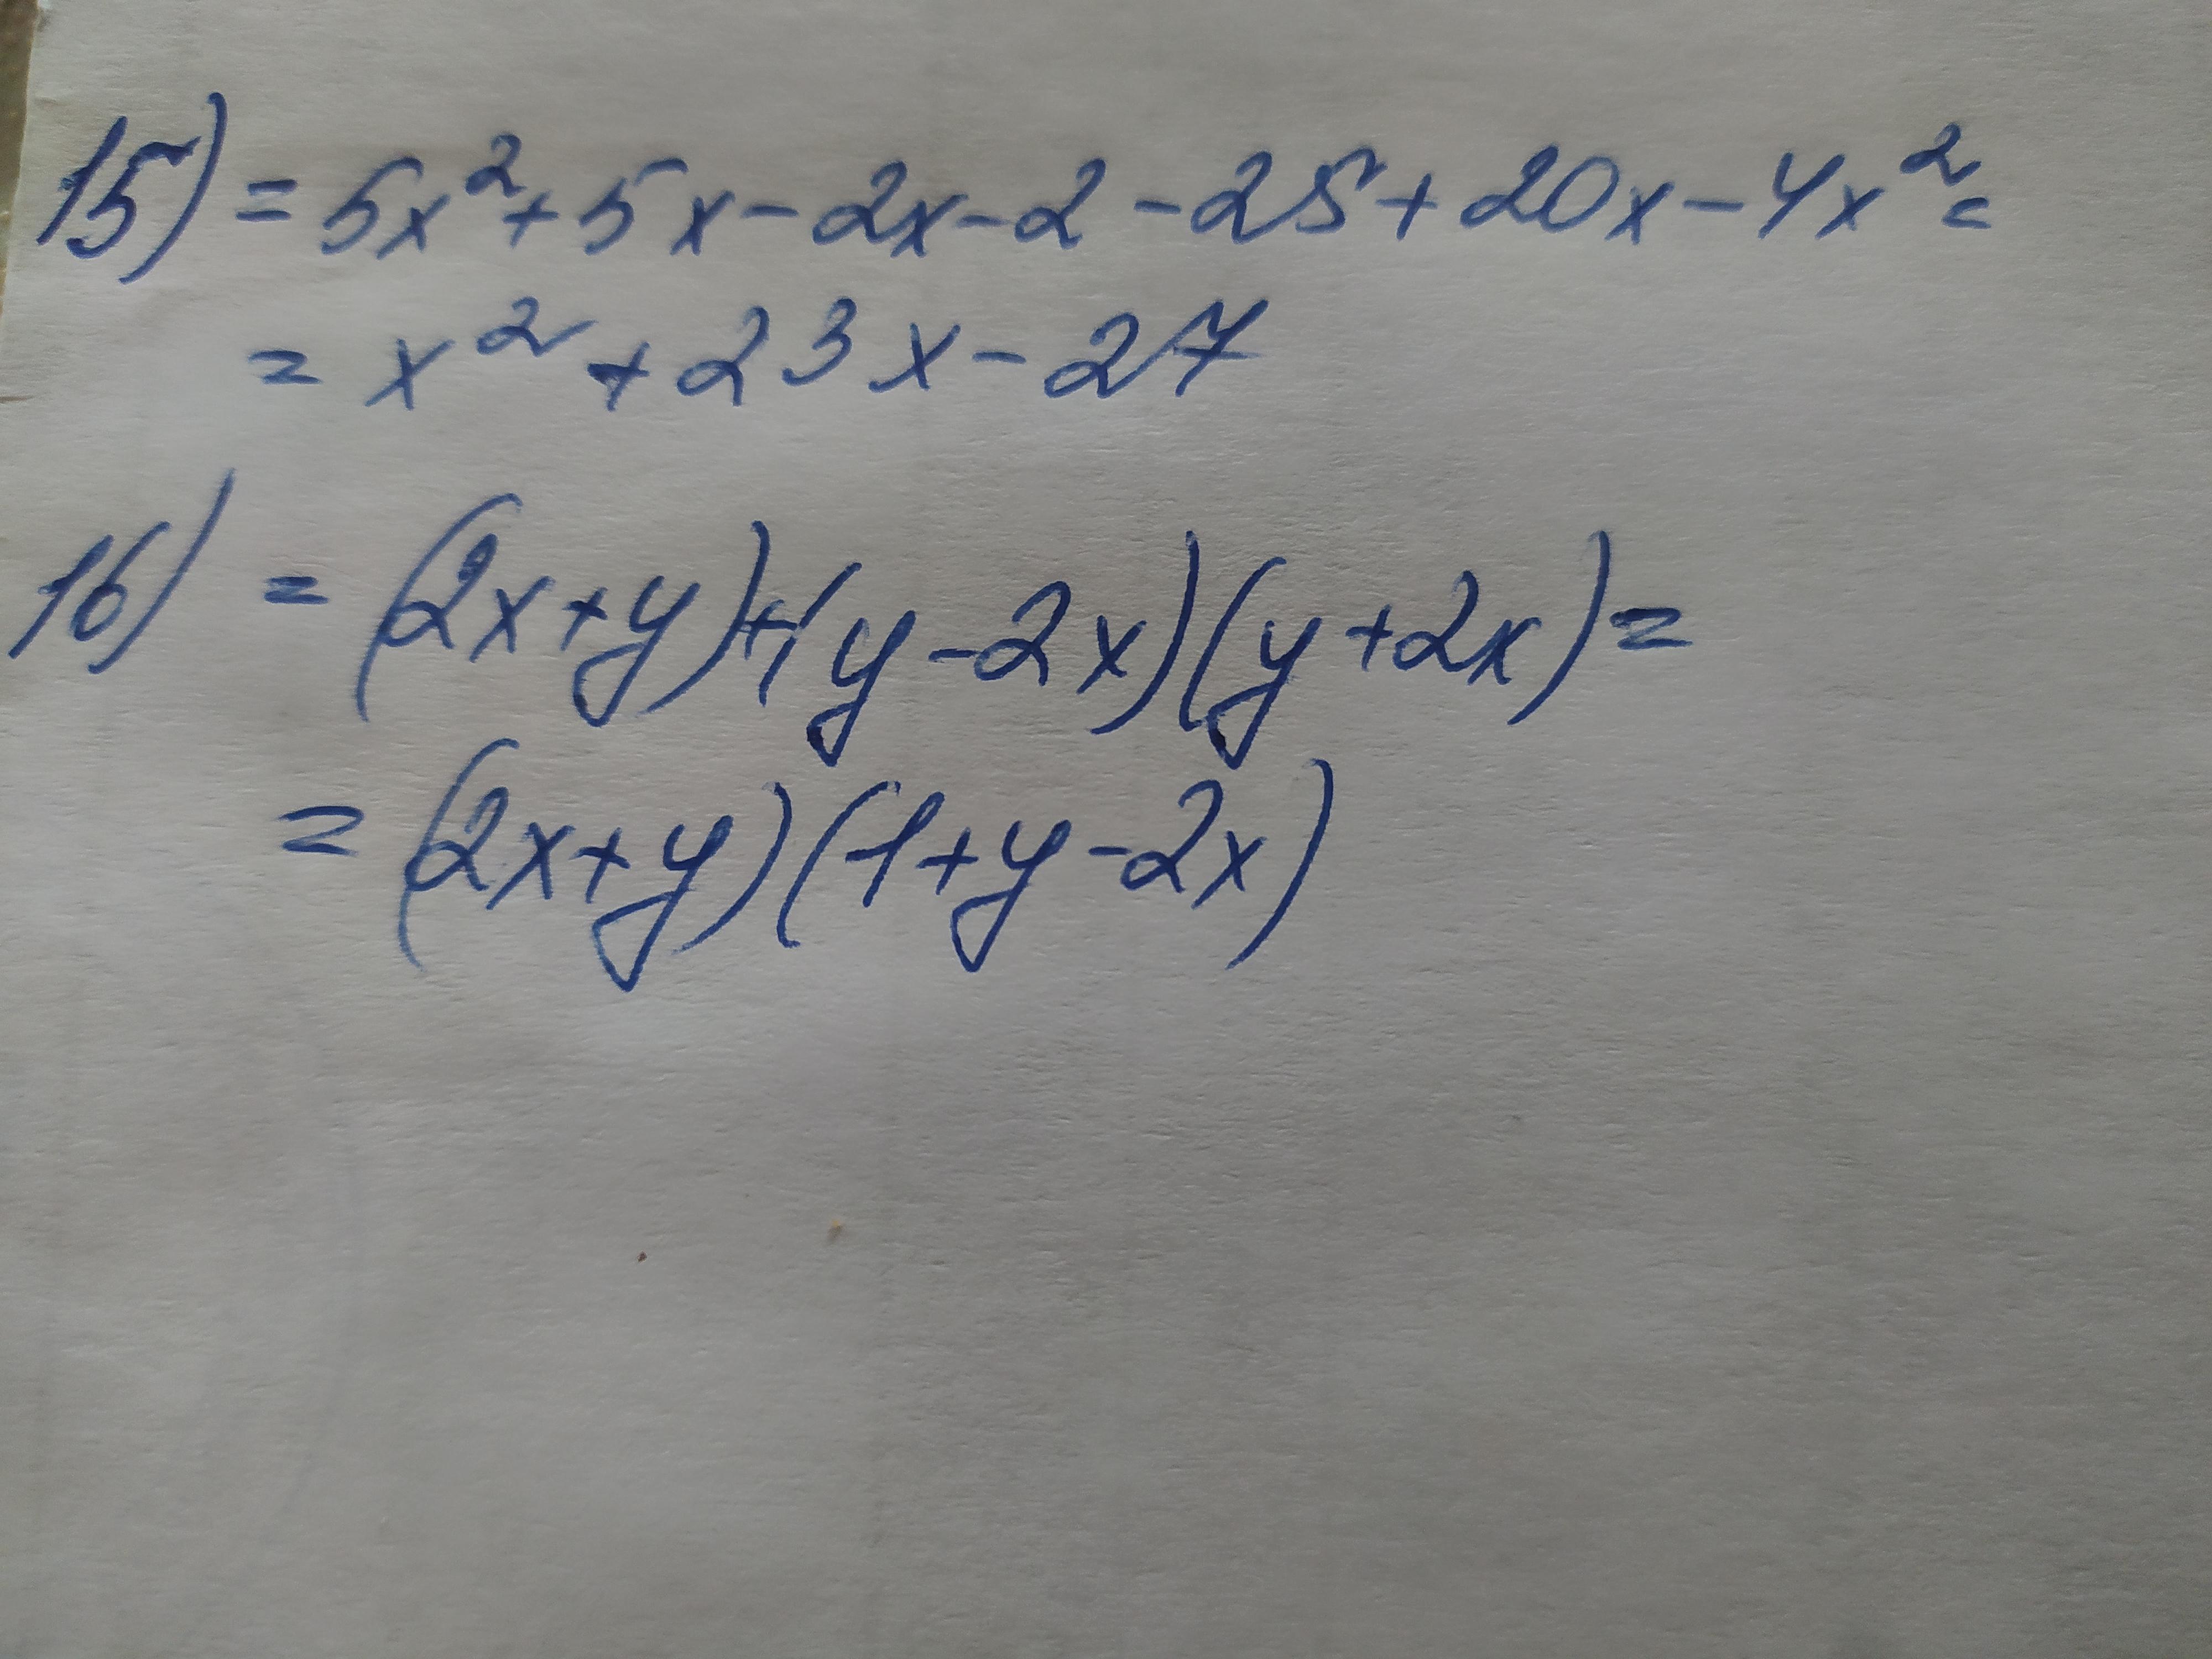 15) = 5x²+5x-2x-2-25+20x-4x²=
= x²+23x-27
16) = (2x+y)+(y-2x)(y+2x)=
= (2x+y)(1+y-2x)